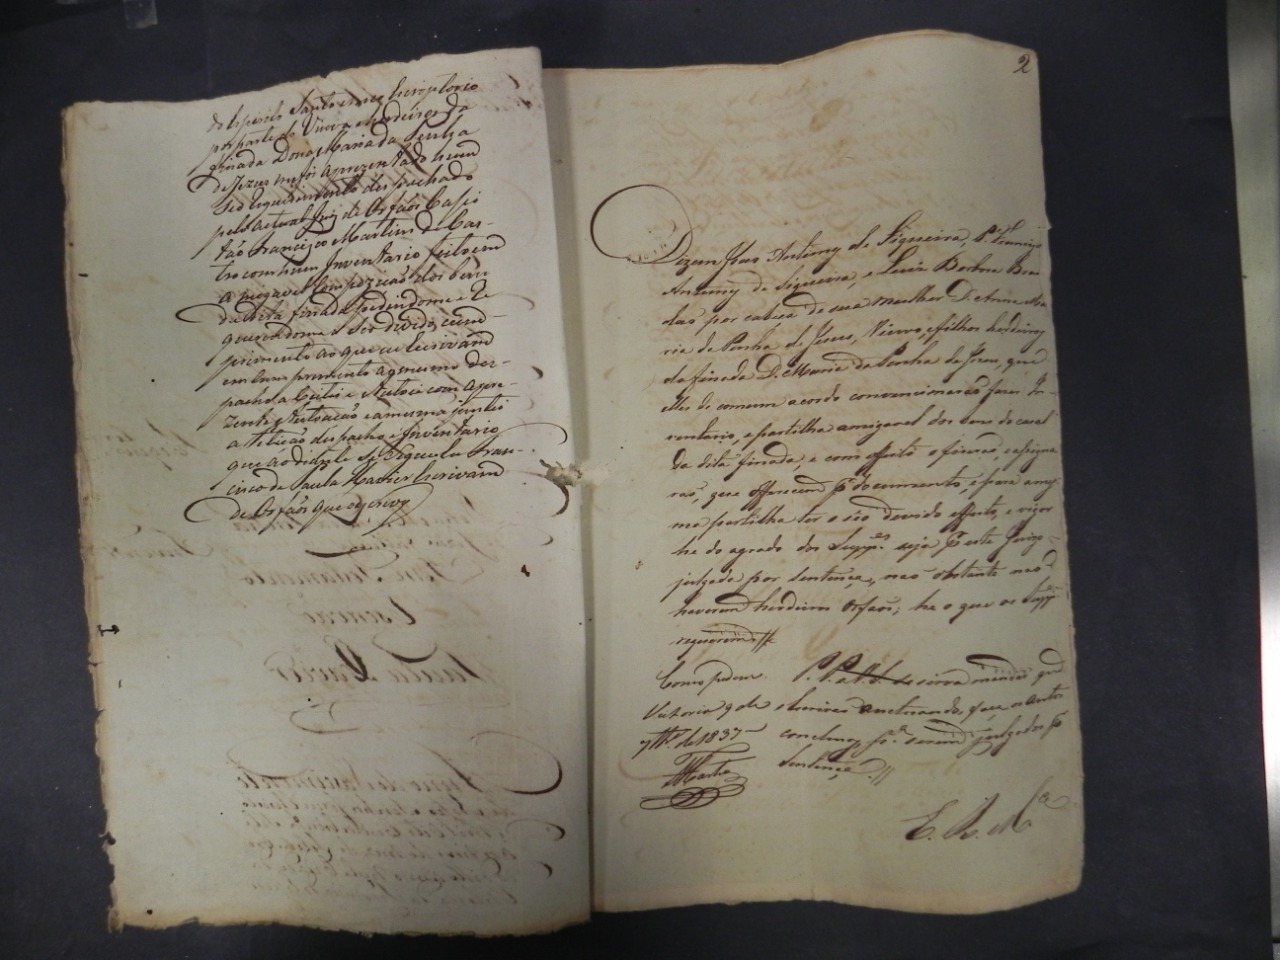 do Espirito Santo e meo Escriptorio
por parte do Viuvo e herdeiros da
finada Dona Maria da Penha
de Jezus me foi aprezentado hum
seo Requerimento despachado
pelo actual Juiz de Orfãos Capi
tão Francisco Martins de Cas-
tro com hum Inventario feito em
amigavel Compozicaõ dos bens
da dita finada Pedindome e Re
querendome o seo devido cum-
primento ao que eu Escrivam
em Comprimento ao mesmo des-
pacho aCeitei e Autoei com a pre-
zente Autuacaõ e a mesma juntei
a Peticaõ despacho e Inventario
que ao diante se Segue Eu Fran-
cisco de Paula Xavier Escrivam
de Orfãos que escrevy
2
Dizem Joaõ Antunes de Siqueira, P.e Francisco
Antunes de Siqueira, e Luiz Barboza
das por cabeça de sua mulher D. Anna Ma
ria da Penha de Jesus, Viuvo, e filhos herdeiros
da finada D. Maria da Penha de Jesus, que
elles de comum acordo convencionaraõ fazer In-
ventario, e partilha amigavel dos bens do casal
da dita finada, e com effeito o fiseraõ, e assigna
raõ, que offerecem por documento, e para a mes
ma partilha ter o seo devido effeito, e vigor
he do agrado dos Supp.es seja por este Juizo
julgada por sentença, naõ obstante naõ
haverem herdeiros Orfaõs; he o que os Supp.es
requerem //
Como pedem. P. P. a V. S. se sirva mandar que
Victoria 9 de o Escrivaõ auctuando, faça os autos
7br.o de 1837 conclusos p.a serem julgados por
Castro sentença //
E. R. M.ce